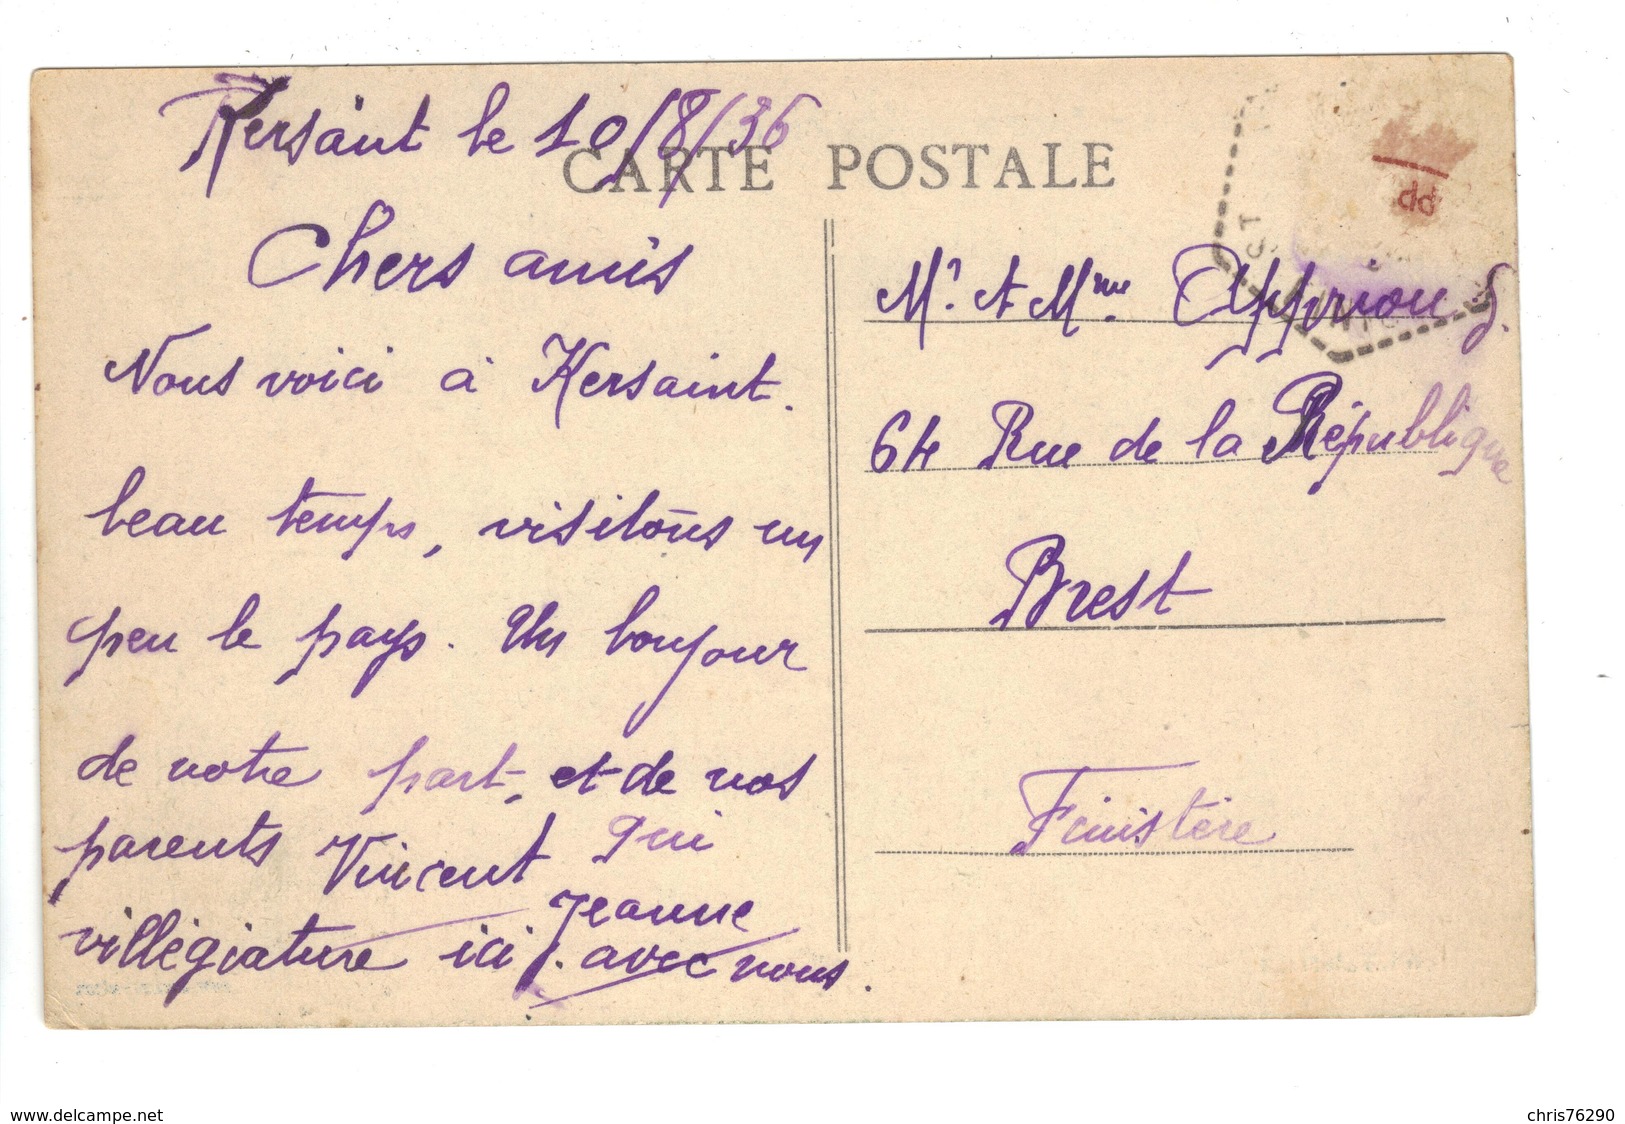 Kersaint le 10/8/36
CARTE POSTALE
Chers amis
Nous voici à Kersaint.
beau temps, visitons un
peu le pays. Un bonjour
de notre part, et de nos
parents Vincent qui
villégiature ici avec nous.
Jeanne
Mr. et Mme. Appriou
64 Rue de la République
Brest
Finistère
www.delcampe.net
chris76290